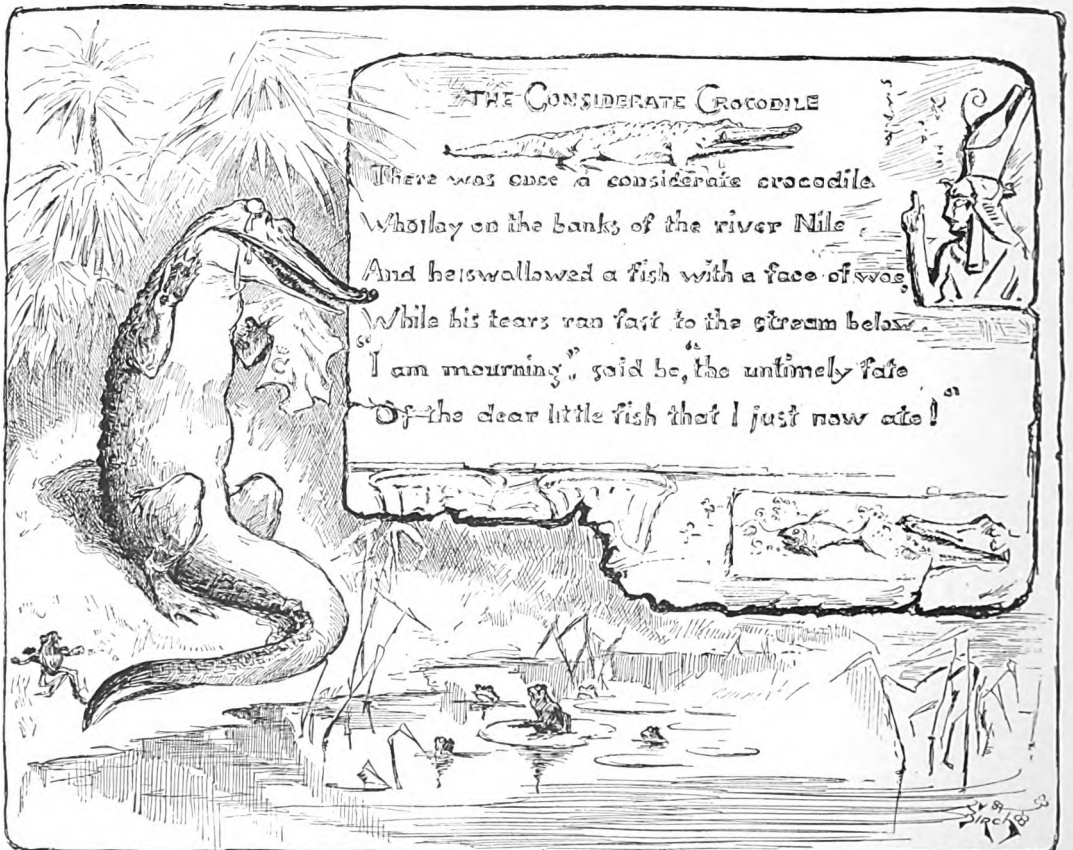 THE CONSIDERATE CROCODILE
There was once a considerate crocodile
Who lay on the banks of the river Nile
And he swallowed a fish with a face of woe,
While his tears ran fast to the stream below.
"I am mourning", said he, "the untimely fate
Of the dear little fish that I just now ate!"
BIRCH